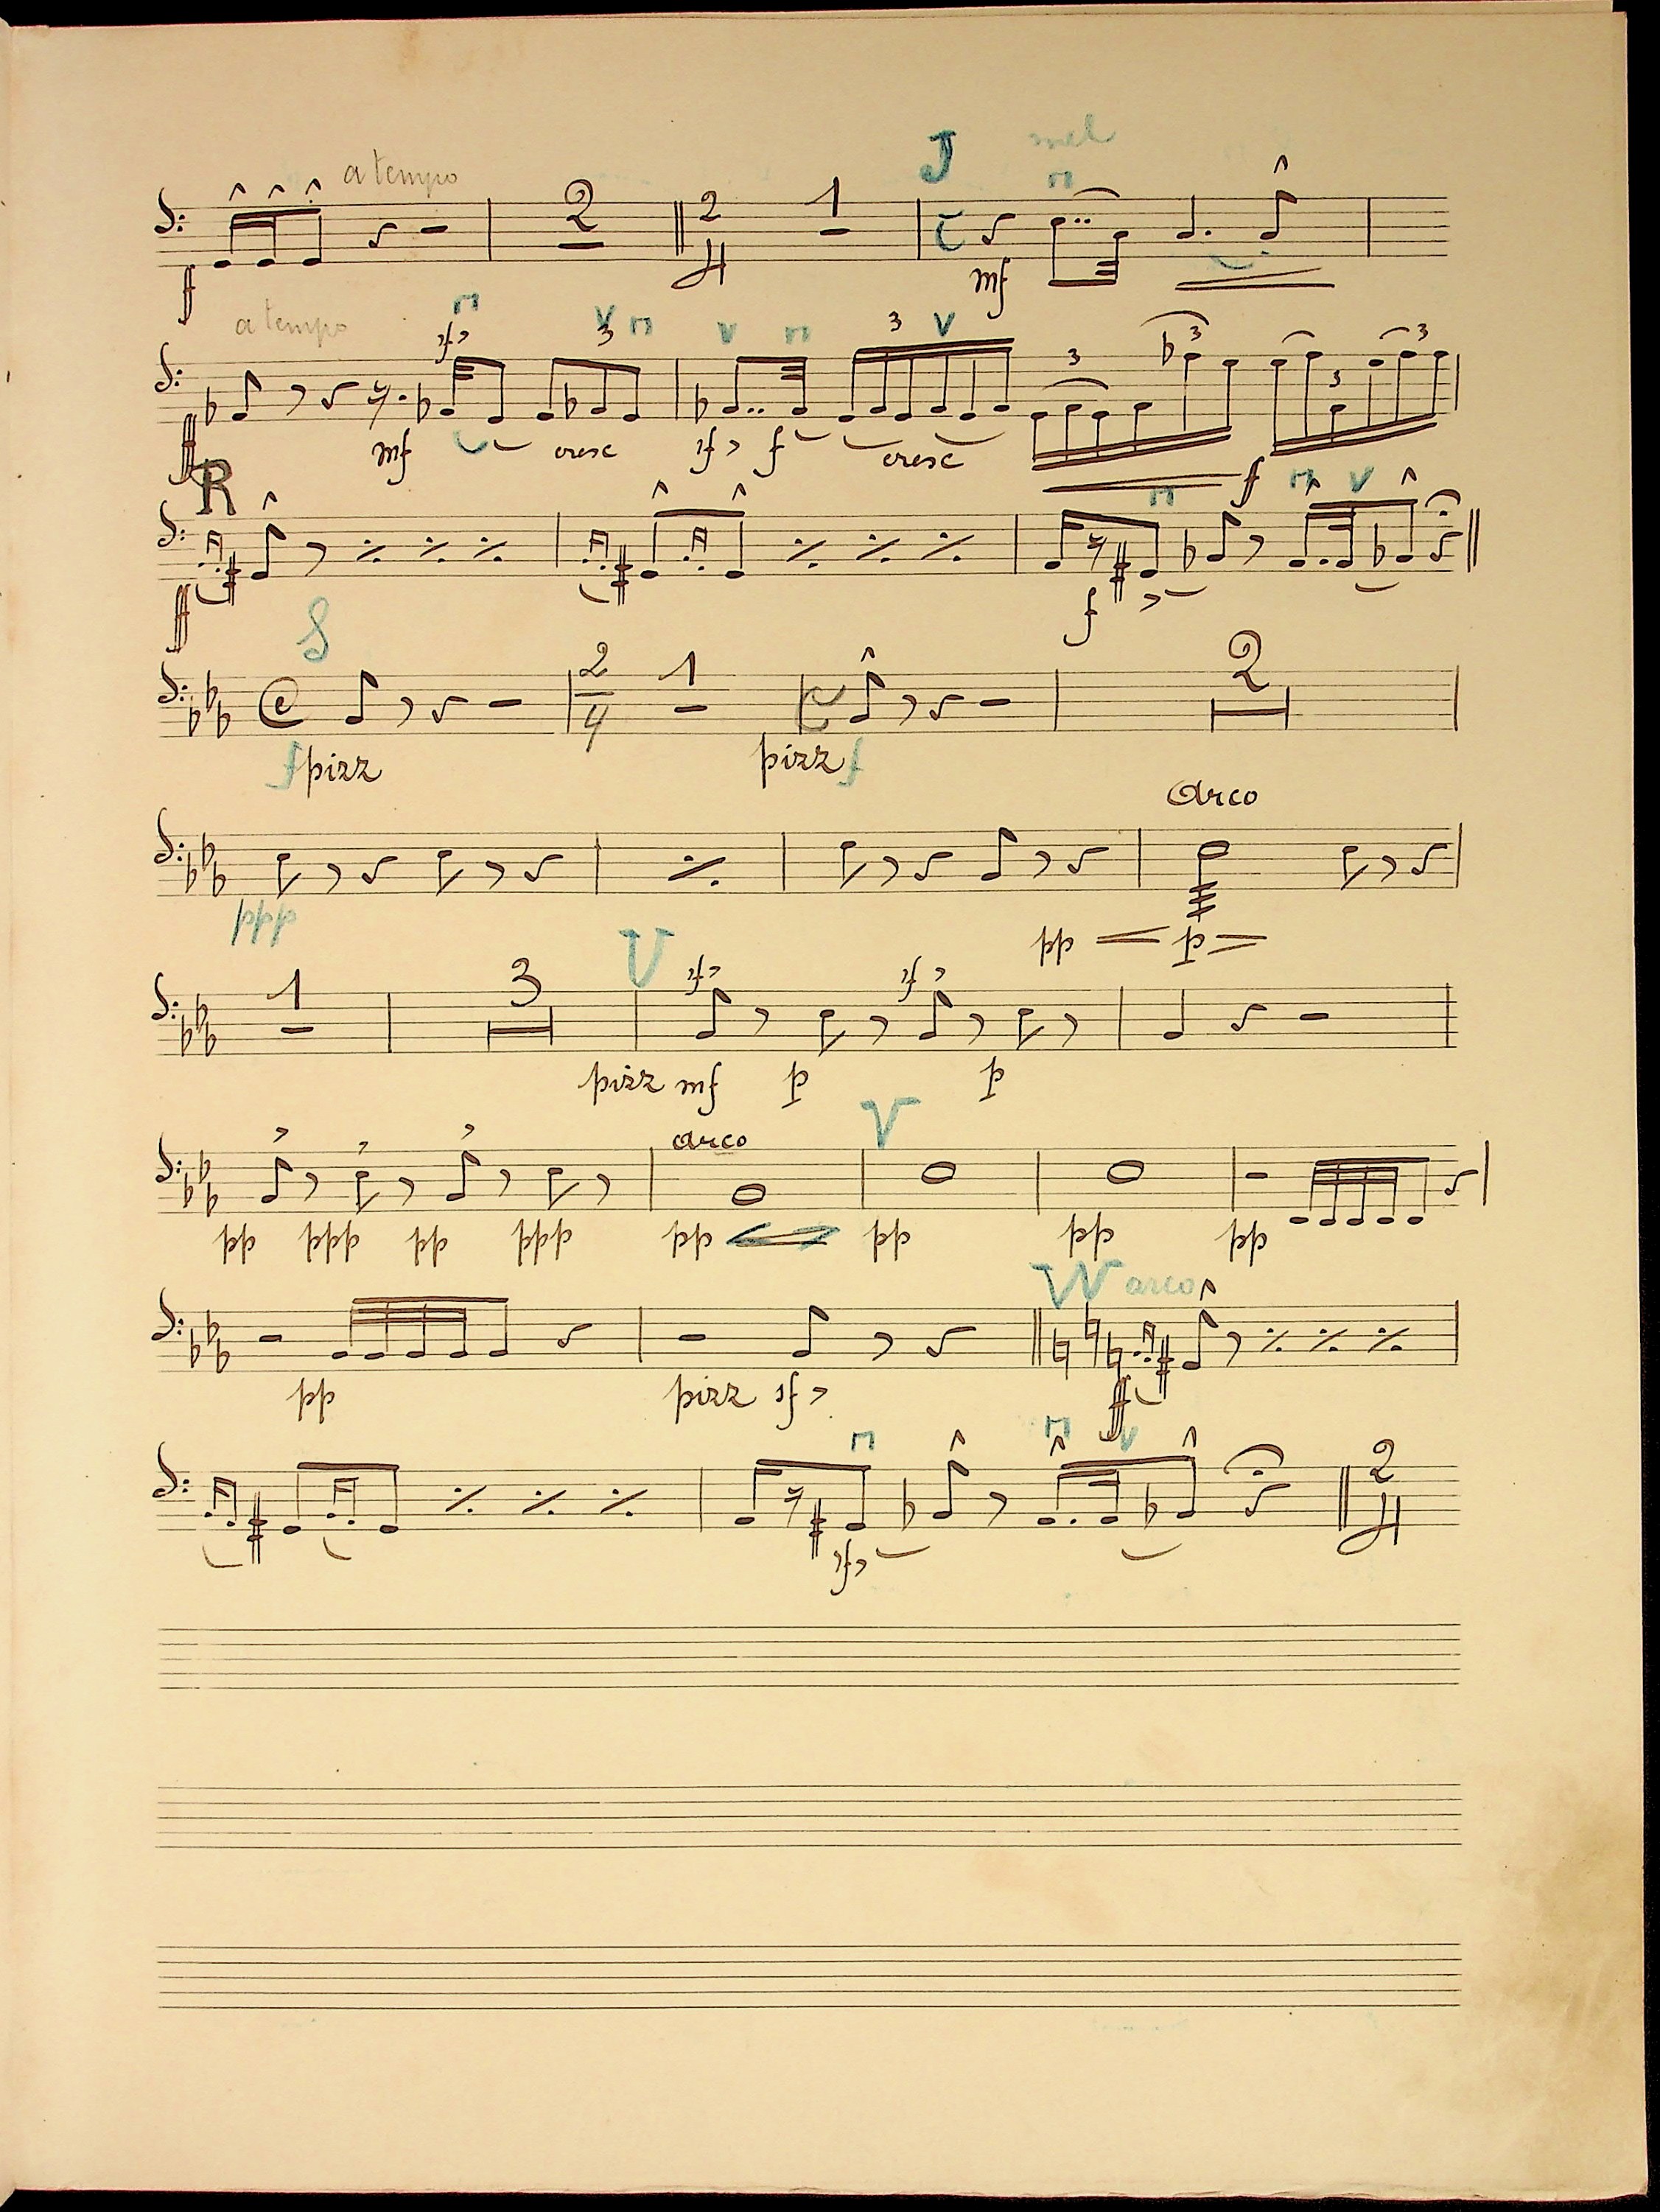 a tempo J mel
2 2 1
4
f mf
a tempo sf 3 3 3 3 3
ff mf cresc sf f cresc f
R
ff f
S 2 1 2
4
f pizz pizz f
Arco
ppp pp p
1 3 U sf sf
pizz mf p p
arco V
pp ppp pp ppp pp pp pp pp
W arco
pp pizz sf ff
2
4
sf